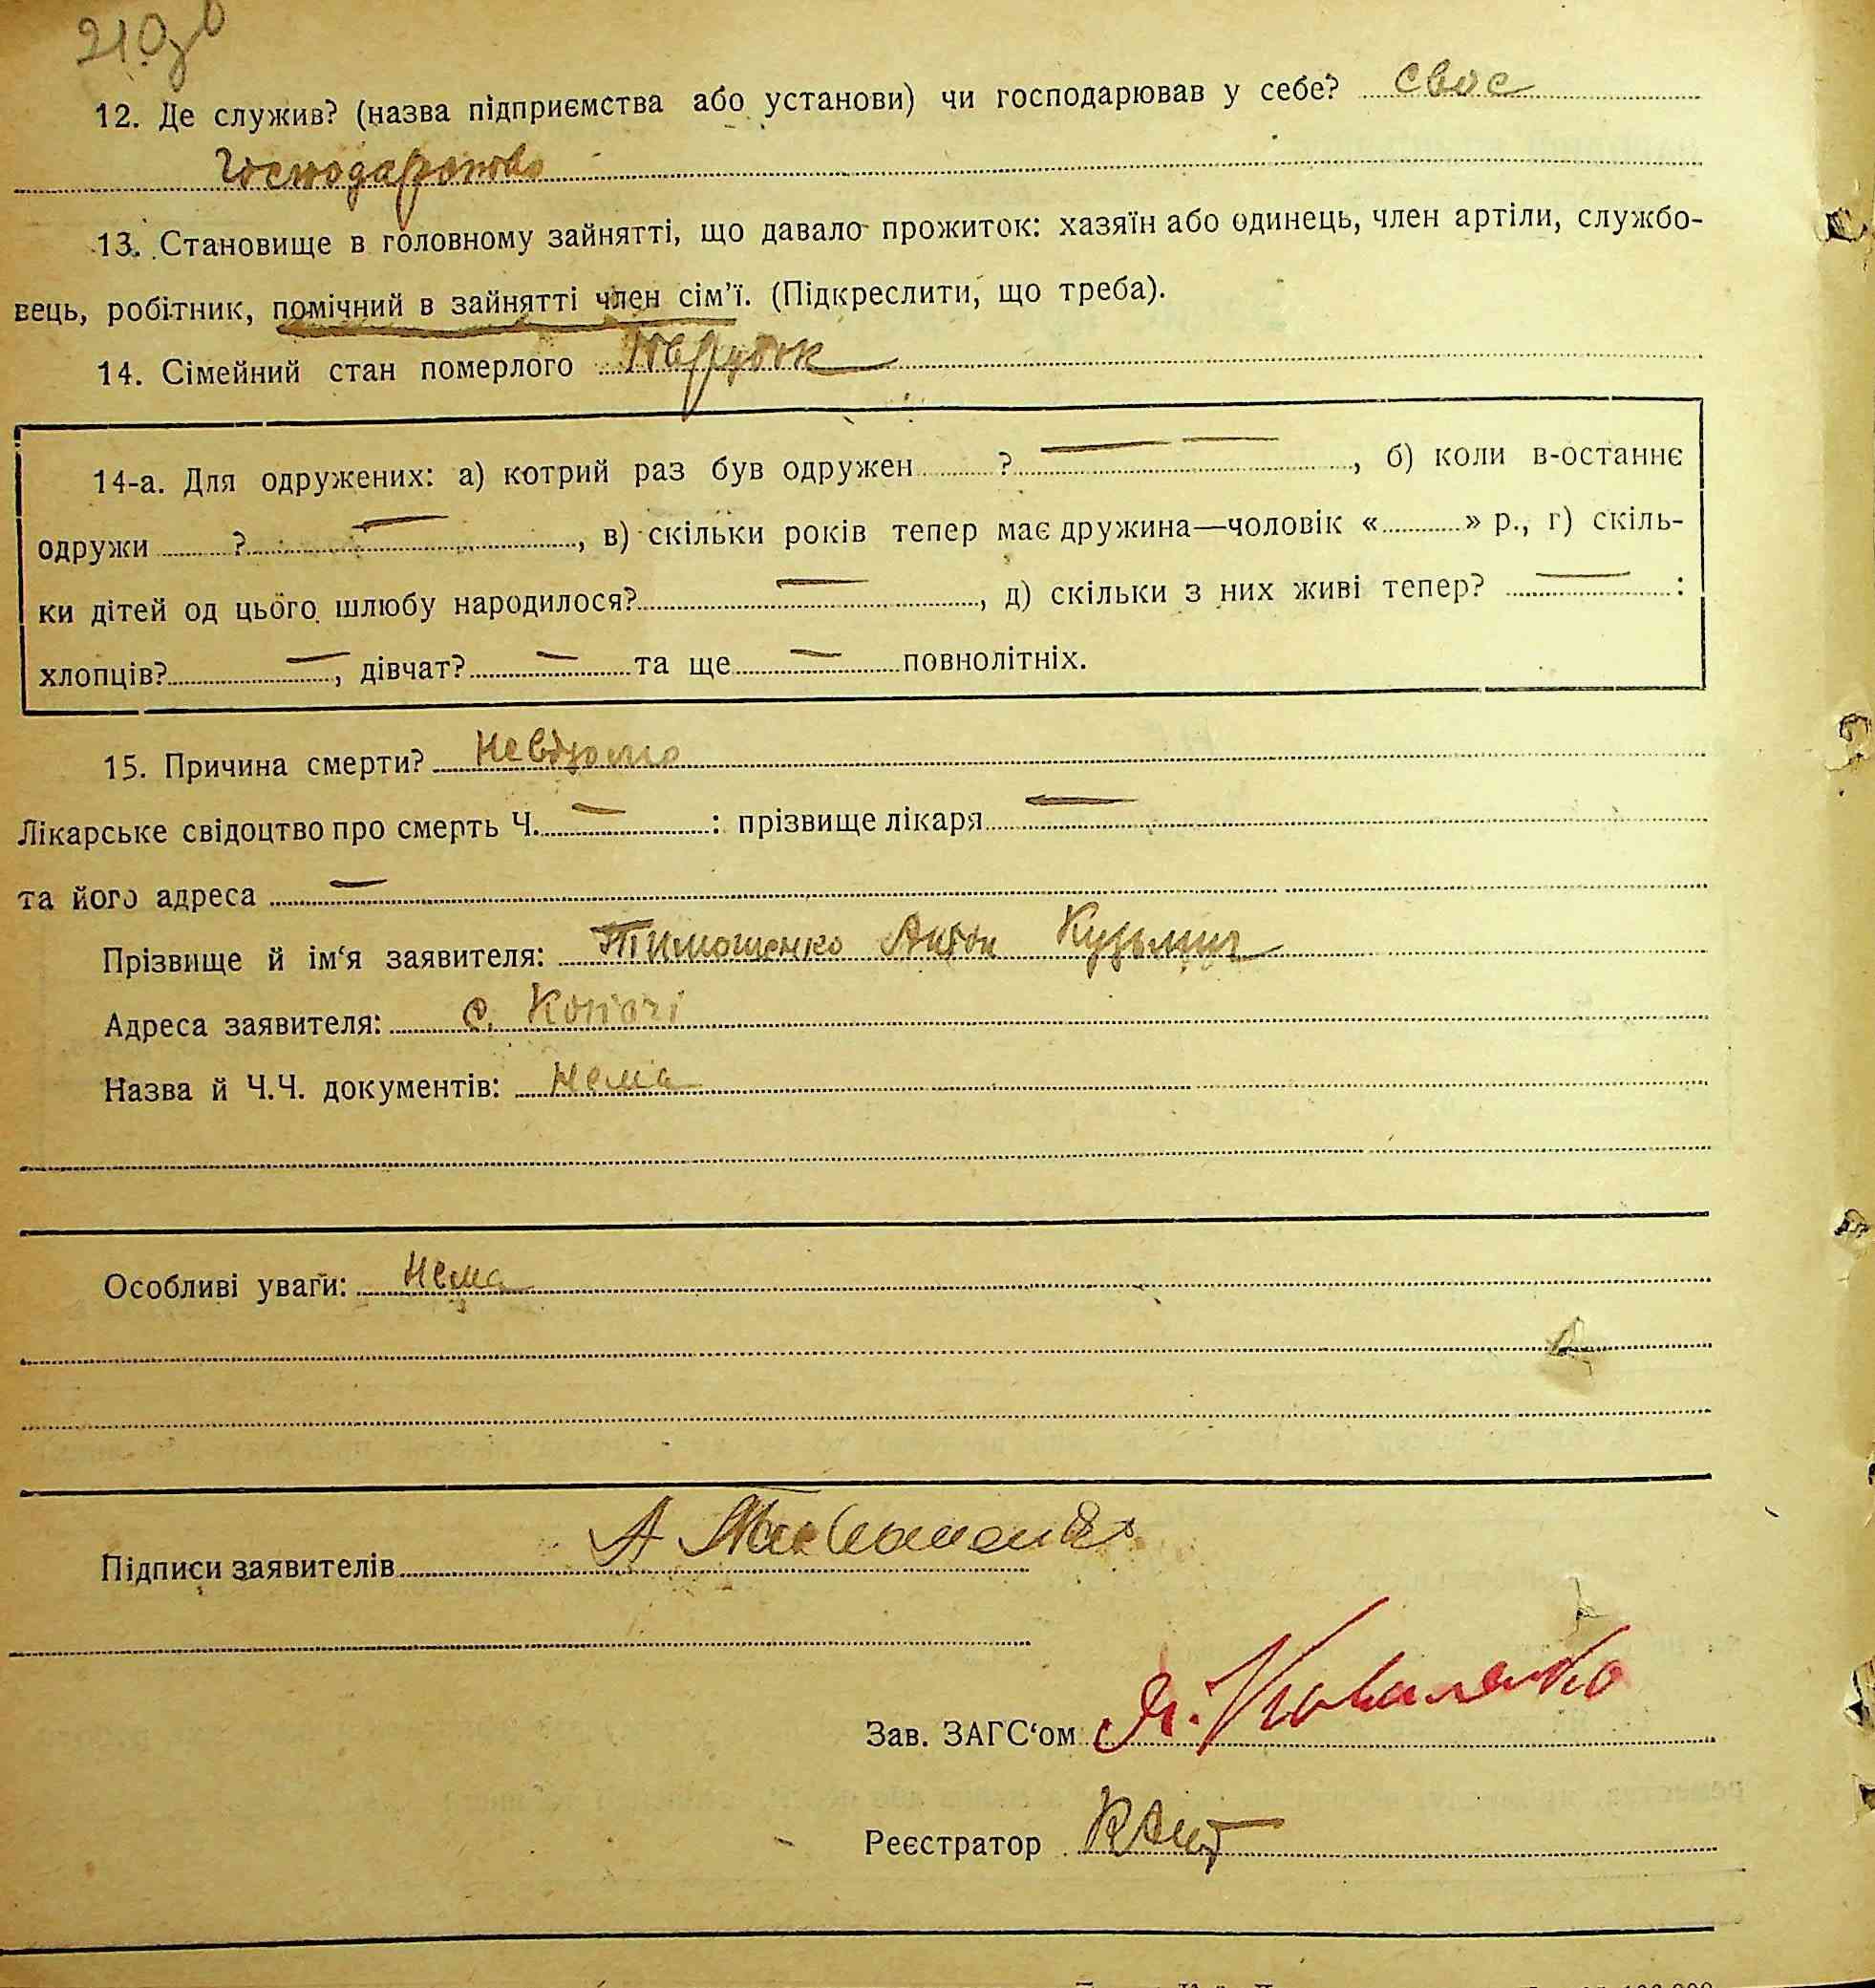 210зв
12. Де служив? (назва підприємства або установи) чи господарював у себе? своє
господарство
13. Становище в головному зайнятті, що давало прожиток: хазяїн або одинець, член артіли, службо-
вець, робітник, помічний в зайнятті член сім’ї. (Підкреслити, що треба).
14. Сімейний стан померлого парубок
14-а. Для одружених: а) котрий раз був одружен ? —, б) коли в-останнє
одружи ? —, в) скільки років тепер має дружина—чоловік « » р., г) скіль-
ки дітей од цього шлюбу народилося? —, д) скільки з них живі тепер? — :
хлопців? —, дівчат? — та ще — повнолітніх.
15. Причина смерти? Невідомо
Лікарське свідоцтво про смерть Ч. — : прізвище лікаря —
та його адреса —
Прізвище й ім‘я заявителя: Тимошенко Антон Кузьмич
Адреса заявителя: с. Копачі
Назва й Ч.Ч. документів: Нема
Особливі уваги: Нема
Підписи заявителів А Тимошенко
Зав. ЗАГС‘ом Коваленко
Реєстратор